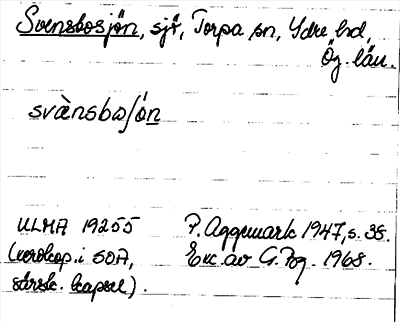 Svensbosjön, sjö, Torpa sn, Ydre hd,
Ög. län.
svὰnsbωʃön
ULMA 19255
(verokop. i SOA,
särsk. kapsel).
P. Aggemark 1947, s. 38.
Exc. av G. Bg. 1968.